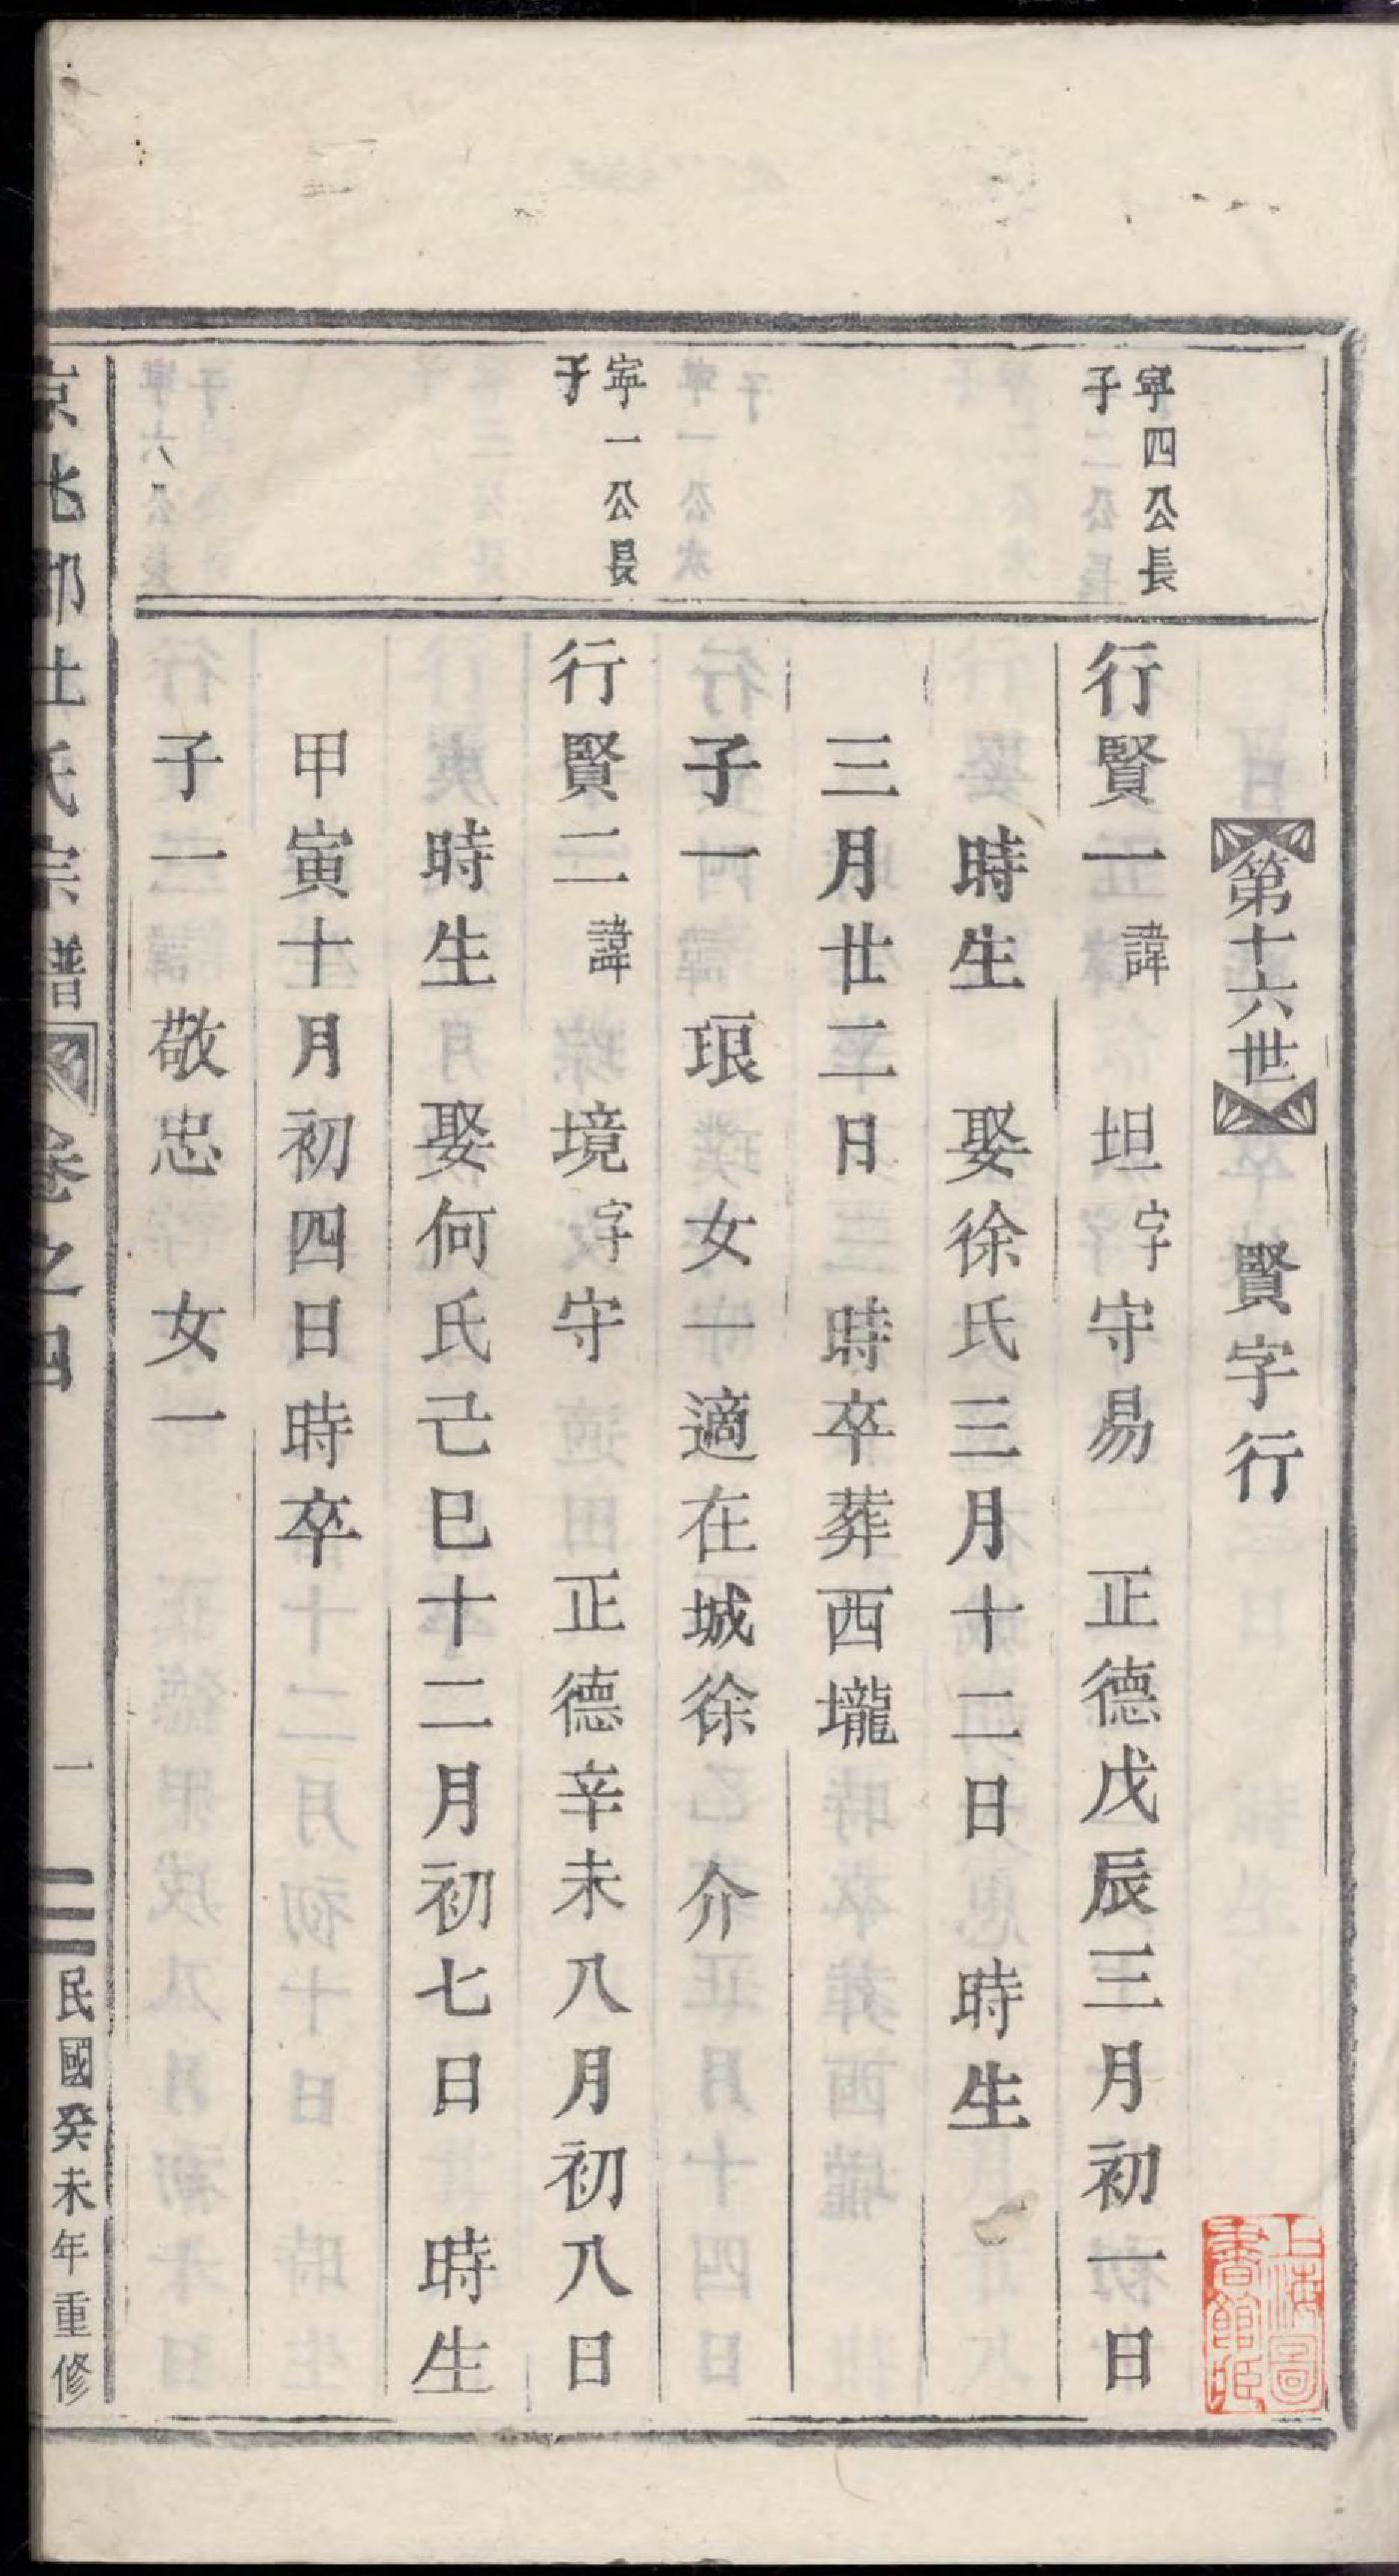 第十六世 賢字行
寧四公長
子
行賢一諱 坦字守易 正德戊辰三月初一日
時生 娶徐氏三月十二日 時生
三月廿二日 時卒葬西壠
子一 琅 女一適在城徐 介
寧一公長
子
行賢二諱 境字守 正德辛未八月初八日
時生 娶何氏己巳十二月初七日 時生
甲寅十月初四日時卒
子一 敬忠 女一
京兆郡杜氏宗譜 卷之四 一 民國癸未年重修
上海圖
書館藏